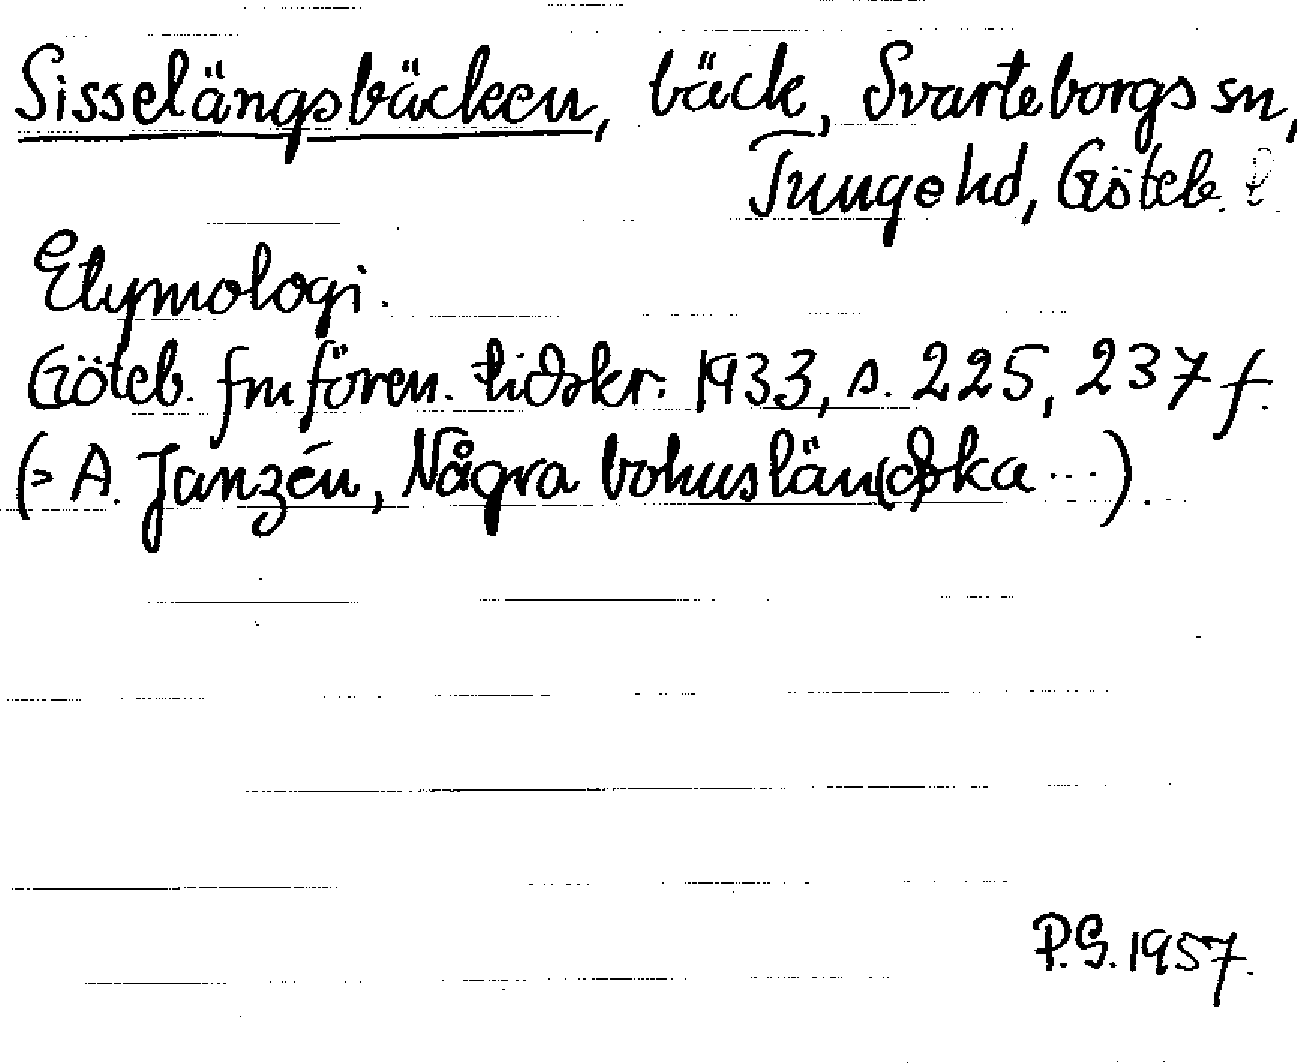 Sisselängsbäcken, bäck, Svarteborgs sn,
Tunge hd, Göteb. l.
Etymologi.
Göteb. fmfören. tidskr. 1933, s. 225, 237 f.
(= A. Janzén, Några bohuslän(d)ska ...).
P.G. 1957.